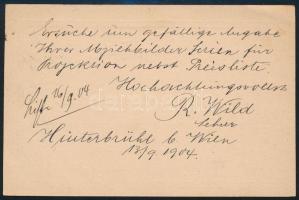 Ersuche um gefällige Angabe
Ihrer Lichtbilder Serien für
Projektion nebst Preisliste.
Hochachtungsvollst
16/9. 04
R. Wild
Lehrer
Hinterbrühl b Wien
13/9 1904.